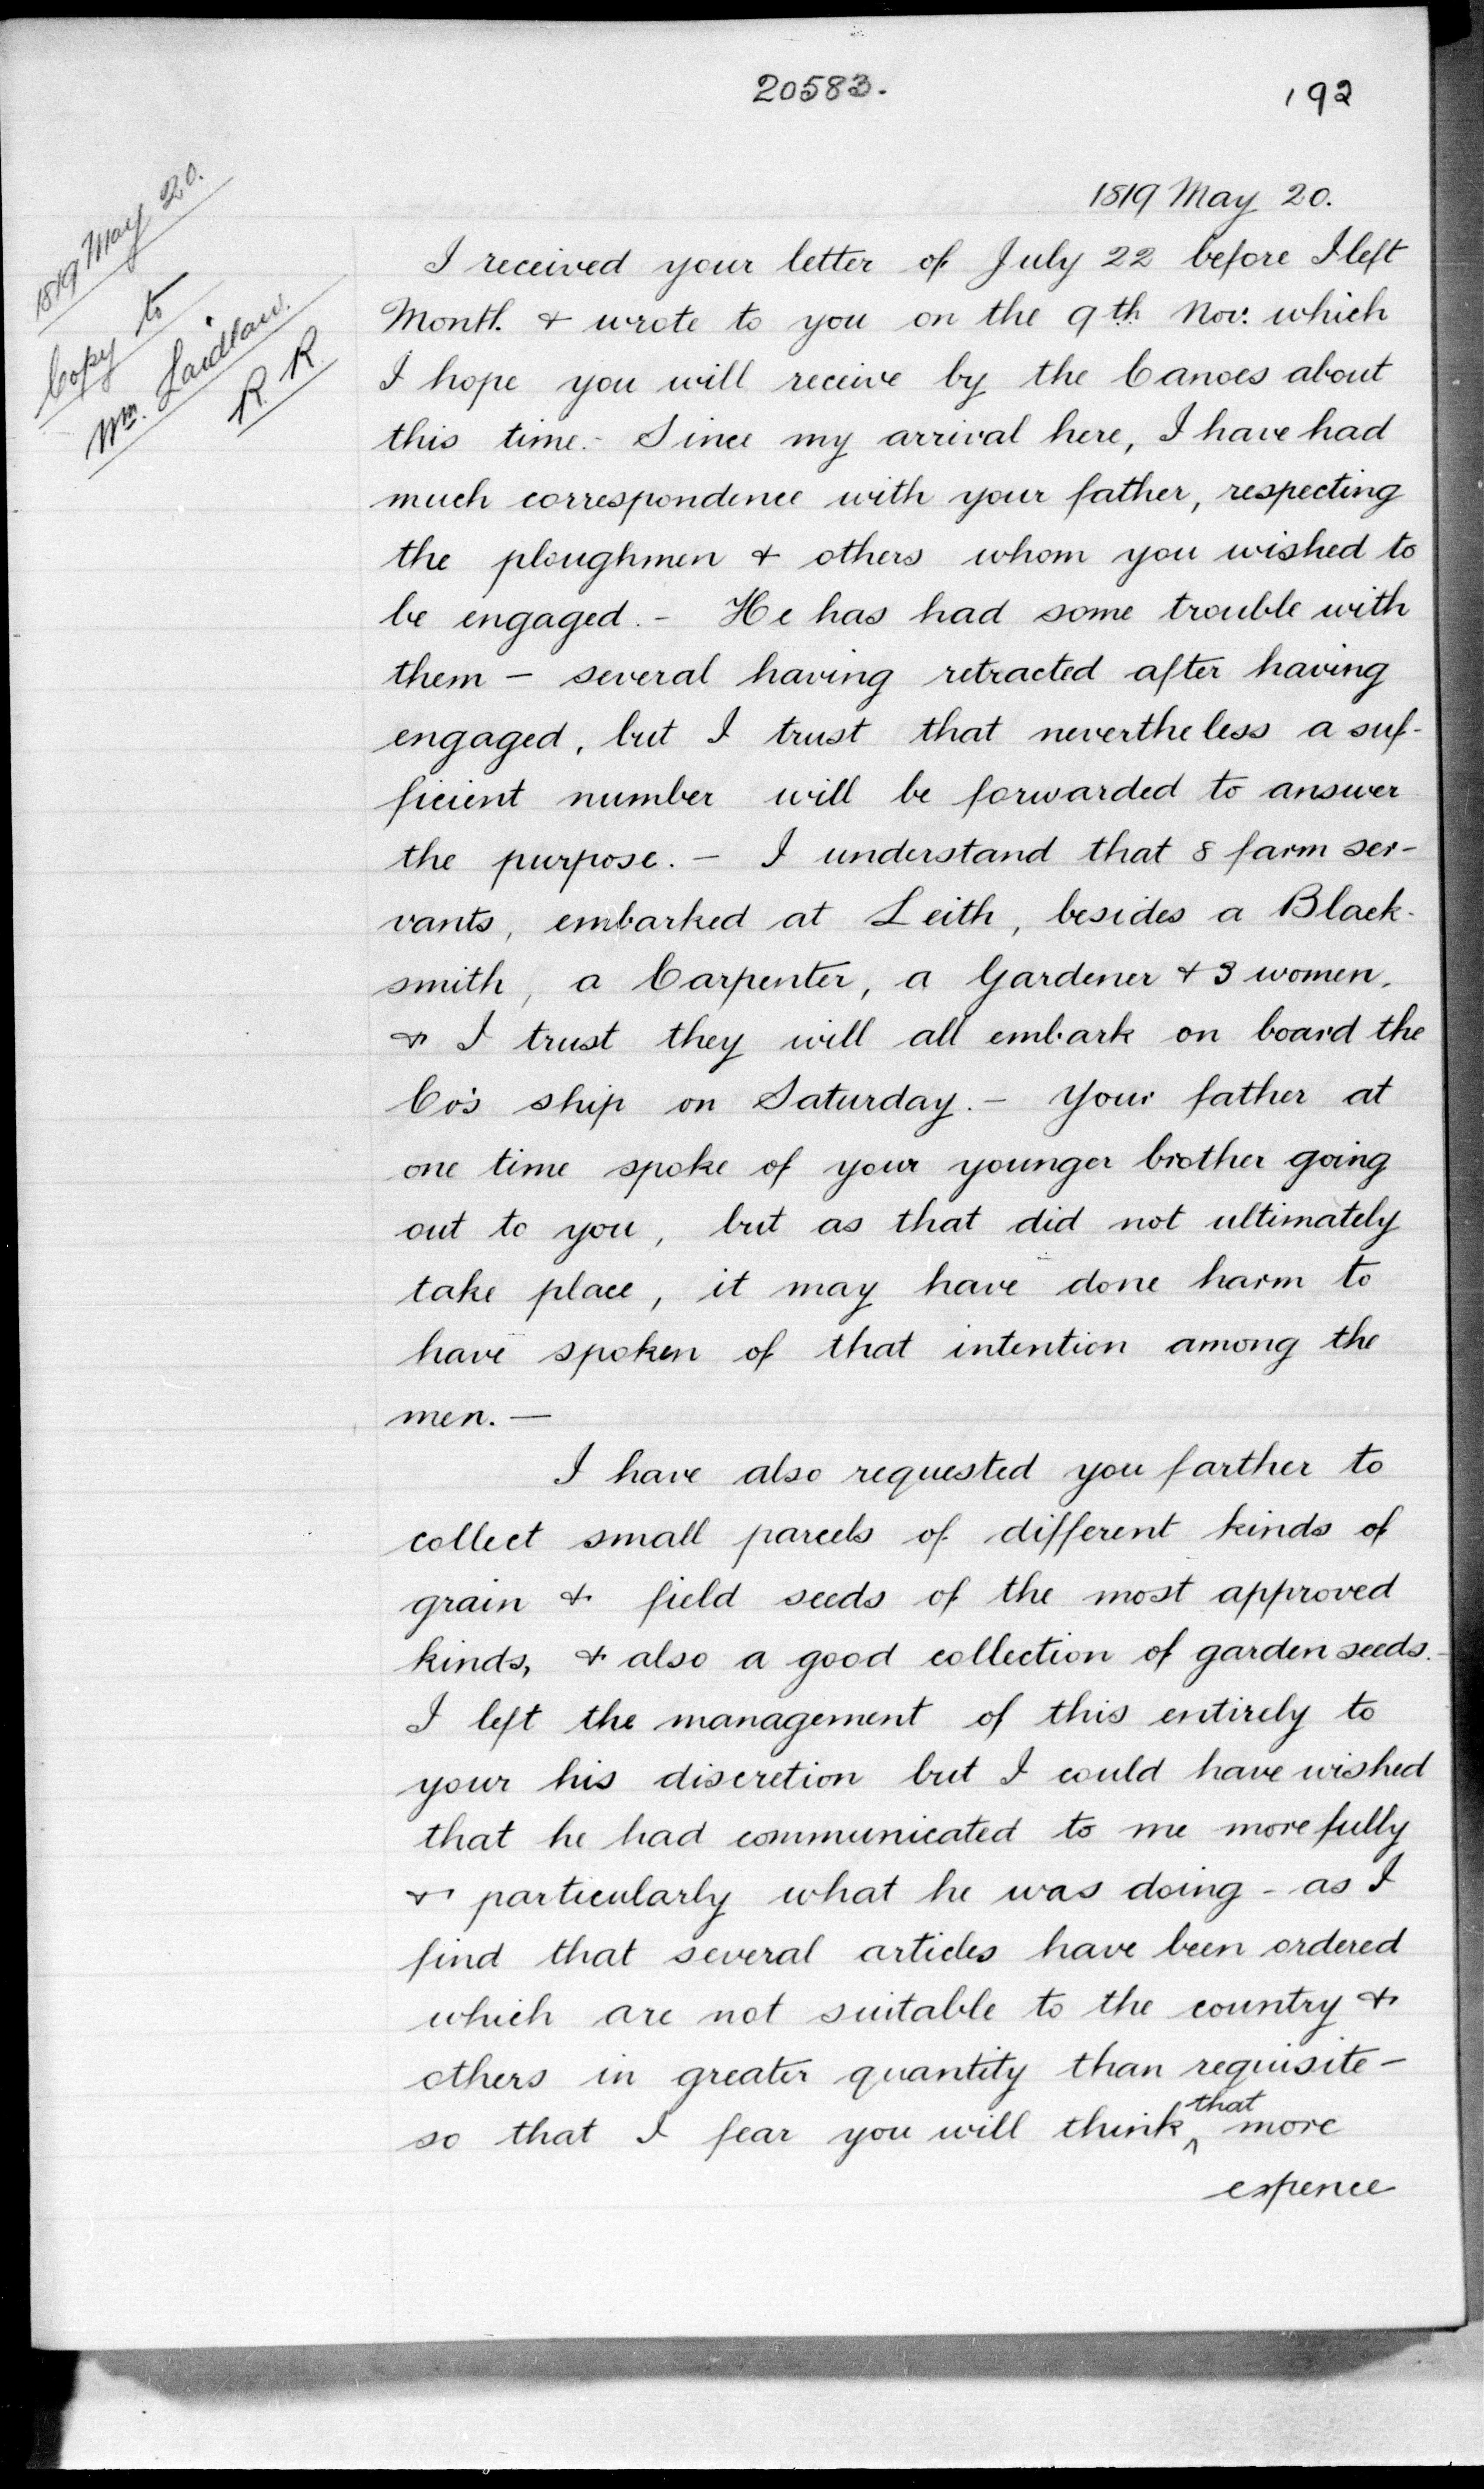 20583.
192
1819 May 20.
Copy to
Wm. Laidlaw.
R R
1819 May 20.
I received your letter of July 22 before I left
Montl. & wrote to you on the 9th Nov. which
I hope you will receive by the Canoes about
this time.- Since my arrival here, I have had
much correspondence with your father, respecting
the ploughmen & others whom you wished to
be engaged.- He has had some trouble with
them - several having retracted after having
engaged, but I trust that nevertheless a suf-
ficient number will be forwarded to answer
the purpose.- I understand that 8 farm ser-
vants, embarked at Leith, besides a Black-
smith, a Carpenter, a Gardener & 3 women,
& I trust they will all embark on board the
Co's ship on Saturday.- Your father at
one time spoke of your younger brother going
out to you, but as that did not ultimately
take place, it may have done harm to
have spoken of that intention among the
men.-
I have also requested you farther to
collect small parcels of different kinds of
grain & field seeds of the most approved
kinds, & also a good collection of garden seeds.-
I left the management of this entirely to
your his discretion but I could have wished
that he had communicated to me more fully
& particularly what he was doing - as I
find that several articles have been ordered
which are not suitable to the country &
others in greater quantity than requisite-
so that I fear you will think ^that more
expence